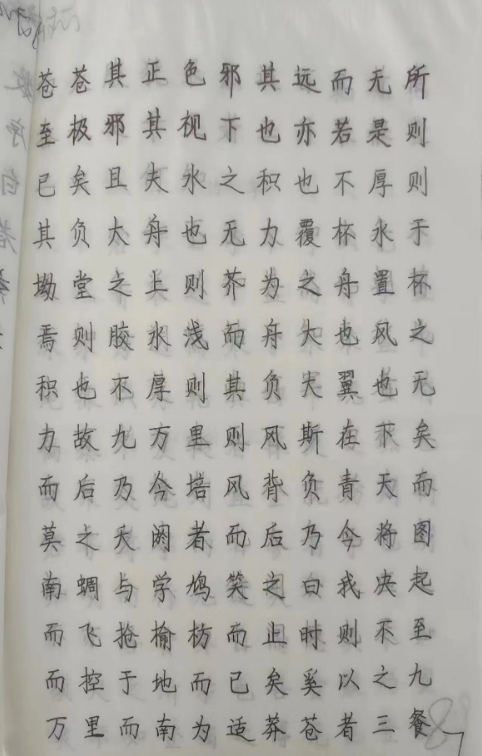 苍苍其正色邪其远而无所
至极邪其视下也亦若是则
已矣且夫水之积也不厚则
其负大舟也无力覆杯水于
坳堂之上则芥为之舟置杯
焉则胶水浅而舟大也风之
积也不厚则其负大翼也无
力故九万里则风斯在下矣
而后乃今培风背负青天而
莫之夭阏者而后乃今将图
南蜩与学鸠笑之曰我决起
而飞抢榆枋而止时则不至
而控于地而已矣奚以之九
万里而南为适莽苍者三餐